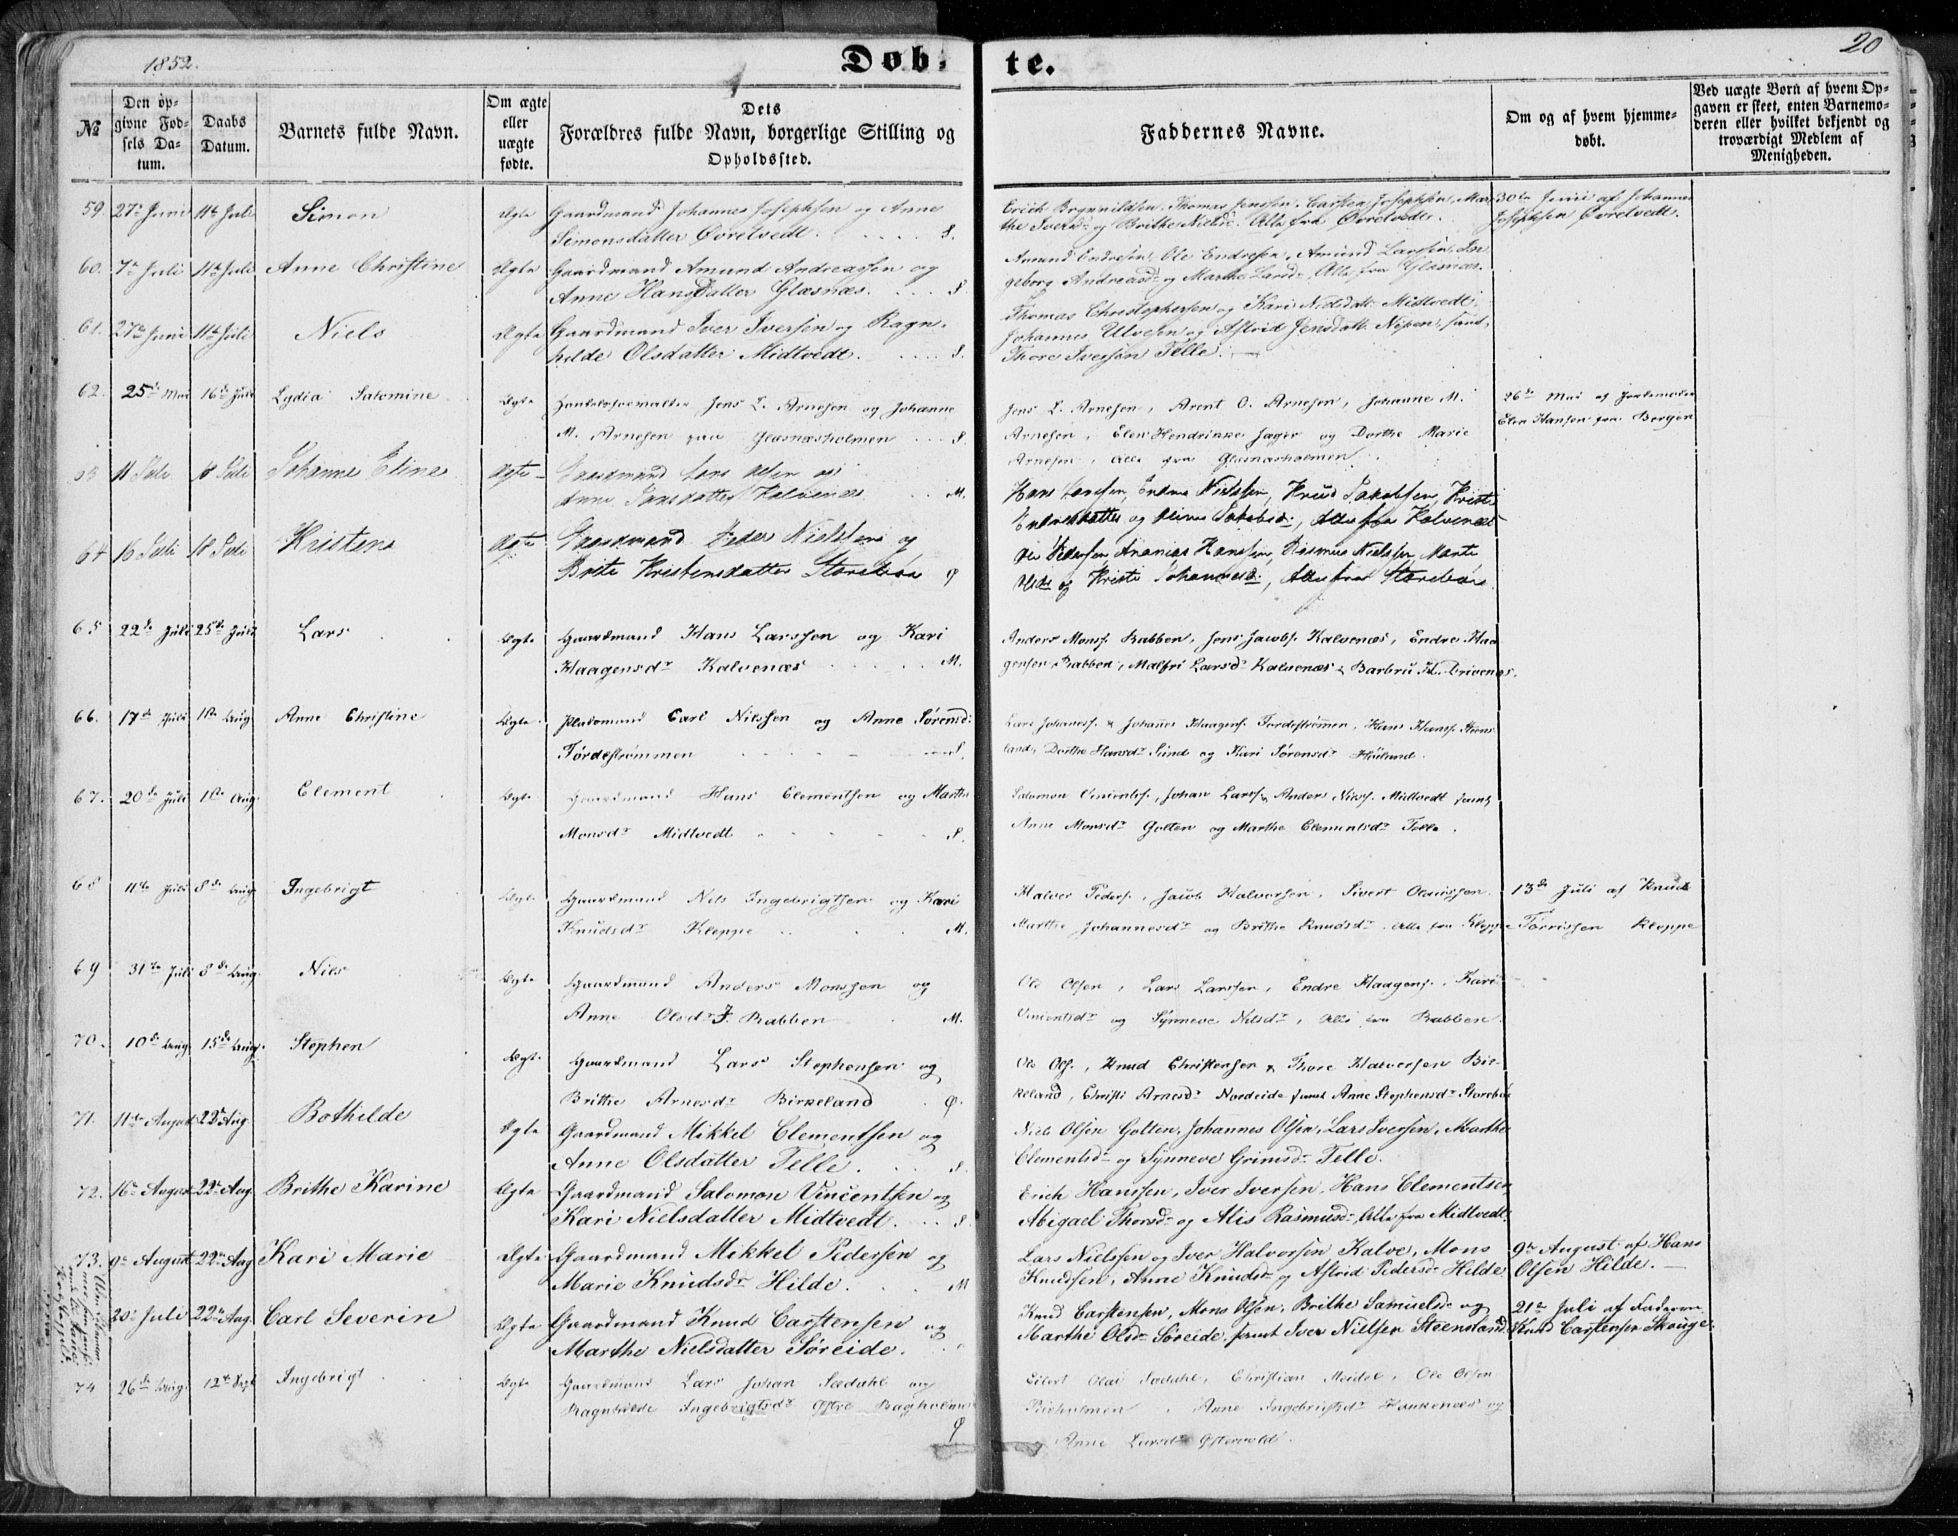 1852.
Døb-
te.
20
№
Den opgivne Fødsels Datum.
Daabs Datum.
Barnets fulde Navn.
Om ægte eller uægte fødte.
Dets Forældres fulde Navn, borgerlige Stilling og Opholdssted.
Faddernes Navne.
Om og af hvem hjemmedøbt.
Ved uægte Børn af hvem Opgaven er skeet, enten Barnemoderen eller hvilket bekjendt og troværdigt Medlem af Menigheden.
59. 27de Juni 11te Juli Simon Ægte Gaardmand Johannes Josephsen og Anne
Simonsdatter Øvretvedt. S.
Erich Brynnildsen, Thomas Jensen, Carsten Josephsen, Mar-
the Iversd. og Brithe Nielsd. Alle fra Øvretvedt.
30te Juni af Johannes
Josephsen Øvretvedt.
60. 7de Juli 11te Juli Anne Christine Ægte Gaardmand Amund Andreassen og
Anne Hansdatter Glæsnæs. S.
Amund Endresen, Ole Endresen, Amund Larsen, In-
geborg Andreasd. og Marthe Larsd. Alle fra Glæsnæs.
61. 27de Juni 11te Juli Niels Ægte Gaardmand Iver Iversen og Ragn-
hilde Olsdatter Midtvedt. S.
Thomas Christophersen og Kari Nielsdatt. Midtvedt,
Johannes Ulvesen og Astrid Jensdatt. Nipen, samt
Thore Iversen Telle.
62. 25de Mai 16de Juli Lydia Salomine Ægte Jens L. Arnesen og Johanne
M. Arnesen paa Glæsnæsholmen S.
Jens L. Arnesen, Arent O. Arnesen, Johanne M.
Arnesen, Elen Hendrikke Jæger og Dorthe Marie
Arnesen, Alle fra Glæsnæsholmen.
26de Mai af Jordemoder
Elen Hansen fra Bergen
63 11 Juli 18 Juli Johanne Eline Ægte Gaardmand Lars Olsen og
Anne Jansdatter Kalvenæs M.
Hans Larssen, Endre Nielssen, Knud Jakobsen, Kristi
Endresdatter og Jakobsd., Alle fra Kalvenæs
64 16 Juli 18 Juli Kristen Ægte Gaardmand Peder Nielssen og
Brite Kristensdatter Storebøe Ø
Ole Pedersen Ananias Hanssen, Rasmus Nielssen Marte
Olsdr og Kristi Johannesd., Alle fra Storebøe
65 22de Juli 25de Juli Lars Ægte Gaardmand Hans Larssen og Kari
Haagensdr Kalvenæs M.
Anders Monss. Rabben, Jens Jacobs. Kalvenæs, Endre Haa-
gensen Rabben, Malfri Larsdr Kalvenæs & Barbru H. Drivenæs.
66. 17de Juli 1ste Aug Anne Christine Ægte Pladsmand Carl Nilssen og Anne Sørensd:
Førdestrømmen S.
Lars Johaness. & Johanes Haagens. Førdestrømmen, Hans Hanss. Steens-
land, Dorthe Hansdr Sund og Kari Sørensdr Høiland.
67. 20de Juli 1ste Aug. Clement Ægte Gaardmand Hans Clementsen og Marthe
Monsdr Midtvedt S.
Salomon Vincents., Johan Larss. & Anders Nilss. Midtvedt samt
Anne Monsdr Golten og Marthe Clementsdr Telle.
68 11te Juli 8de Aug Ingebrigt Ægte Gaardmand Nils Ingebrigtsen og Kari
Knudsdr Kleppe M.
Halvor Peders., Jacob Halvorsen, Sivert Olaussen
Marthe Johannesdr og Brithe Knudsdr. Alle fra Kleppe
13de Juli af Knud
Torrissen Kleppe
69 31te Juli 8de Aug. Nils Ægte Gaardmand Anders Monssen og
Anne Olsdr J. Rabben M.
Ole Olsen, Lars Larssen, Endre Haagens., Kari
Vincentsdr og Synneve Nilsdr, Alle fra Rabben.
70. 10de Aug. 15de Aug. Stephen Ægte Gaardmand Lars Stephensen og
Brithe Arnesdr Birkeland Ø.
Ole Ols., Knud Christensen & Thore Halvorsen Bir-
keland, Christi Arnesdr Nordeide samt Anne Stephensdr Storebøe
71. 11te August 22de Aug Bothilde Ægte Gaardmand Mikkel Clementsen og
Anne Olsdatter Telle. S.
Niels Olsen Golten, Johannes Olsen, Lars Iversen, Marthe
Clementsdr og Synneve Grimsdr Telle.
72. 16de August 22de Aug. Brithe Karine Ægte Gaardmand Salomon Vincentsen og
Kari Nielsdatter Midtvedt. S.
Erich Hanssen, Iver Iversen, Hans Clementsen
Abigael Thorsdr og Alis Rasmusdr, Alle fra Midtvedt.
73. 9de August 22de Aug Kari Marie Ægte Gaardmand Mikkel Pedersen og
Marie Knudsdr Hilde. M
Lars Nielssen og Iver Halvorsen Kalve, Mons
Knudsen, Anne Knudsdr og Astrid Pedersdr Hilde
9de August af Hans
Olsen Hilde.
20de Juli 22de Aug. Carl Severin Ægte Gaardmand Knud Carstensen og
Marthe Nielsdatter Søreide.
Knud Carstensen, Mons Olsen, Brithe Samuelsdr og
Marthe Olsdr Søreide, samt Iver Nielsen Steensland
21de Juli af Faderen
Knud Carstensen Skouge.
74 26de Aug. 12te Sept Ingebrigt Ægte Gaardmand Lars Johan Sædahl og
Ragnhilde Ingebrigtsdr Østre Bagholmen
Ø
Eilert Olai Sædahl, Christian Meidel, Ole Olsen
Anne Ingebrigtsdr Haukenæs og
Anne Larsdr Østervold.